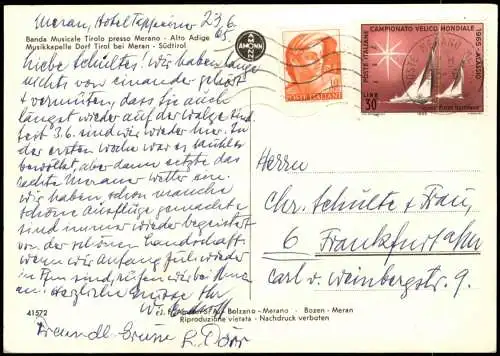 Meran, Hotel Tappeiner 23/6 65
Banda Musicale Tirolo presso Merano - Alto Adige
Musikkapelle Dorf Tirol bei Meran - Südtirol
AMONN
POSTE ITALIANE
CAMPIONATO VELICO MONDIALE
1965 ALASSIO
POSTE ITALIANE
LIRE 30
Liebe Schultes! Wir haben lange
nichts von einander gehört
+ vermuten, dass Sie auch
längst wieder auf der Walze sind.
Seit 3.6. sind wir wieder hier. In
der ersten Woche war es kühler
bewölkt, aber dann setzte das
echte Meraner Wetter ein.
Wir haben schon manche
schöne Ausflüge gemacht +
sind immer wieder begeistert
von der schönen Landschaft.
Wenn wir Anfang Juli wieder
in Ffm sind, rufen wir bei Ihnen
an. Herzliche Grüsse Ihr
Freundl. Grüsse R. Dörr
Herrn
Chr. Schulte + Frau,
6 Frankfurt a/M
Carl v. Weinbergstr. 9.
41572
Bolzano - Merano - Bozen - Meran
Riproduzione vietata - Nachdruck verboten